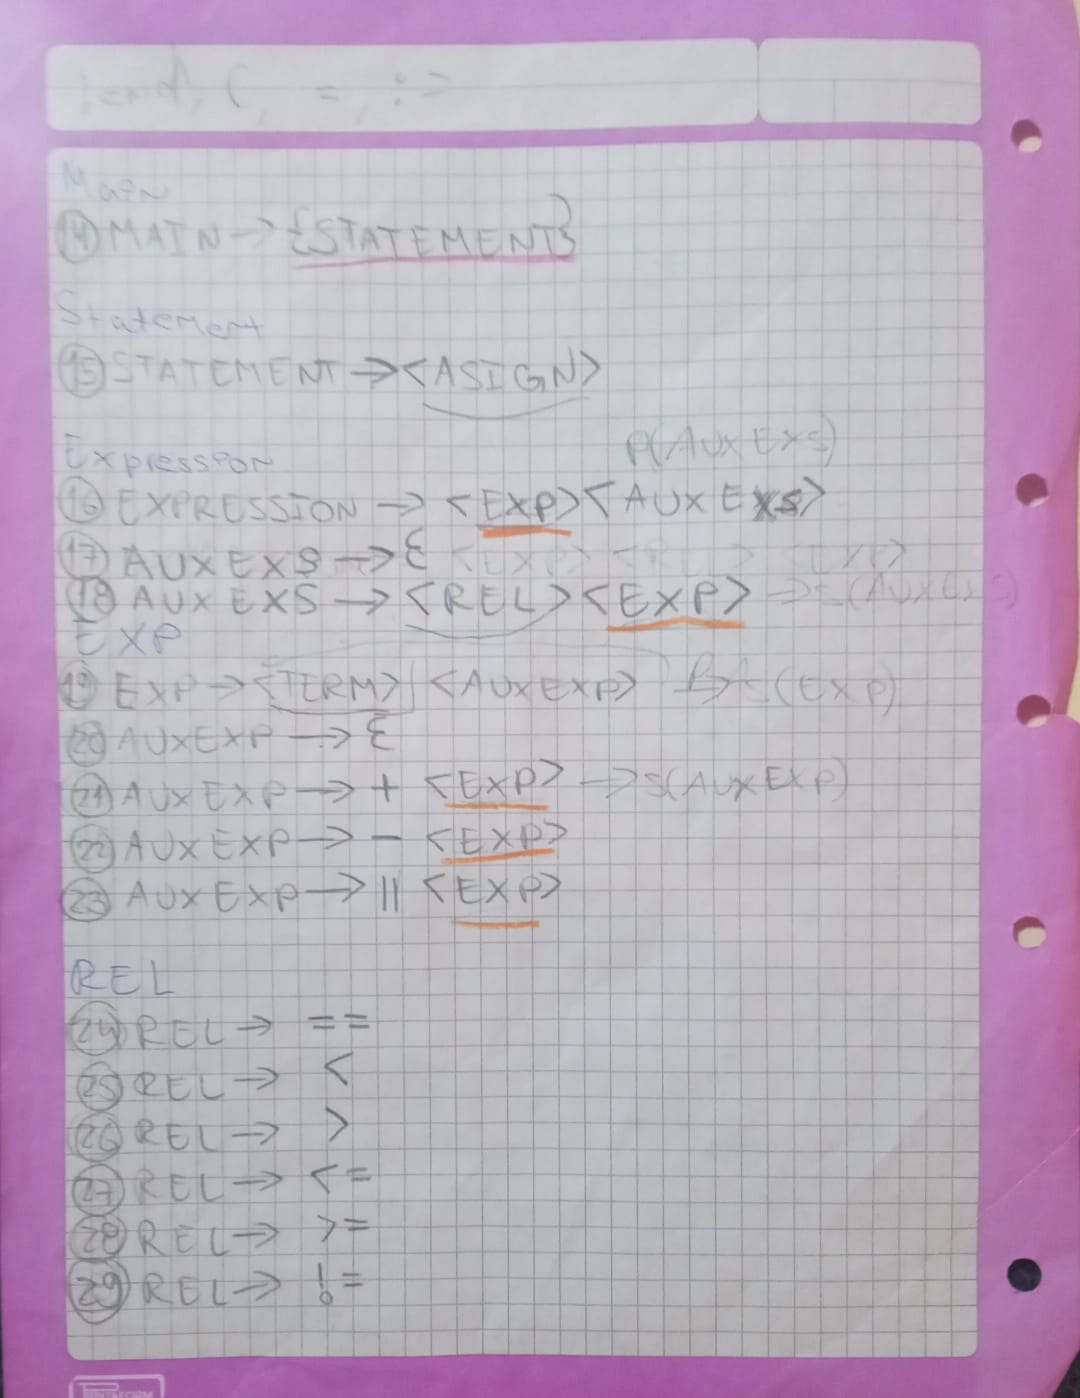 Main
14 MAIN → {STATEMENT}
Statement
15 STATEMENT → <ASIGN>
P(AUXEXS)
Expression
16 EXPRESSION → <EXP><AUXEXS>
17 AUXEXS → Ɛ <EXP> <REL> <EXP>
18 AUXEXS → <REL><EXP> → S(AUXEXS)
EXP
19 EXP → <TERM> <AUXEXP> S(EXP)
20 AUXEXP → Ɛ
21 AUXEXP → + <EXP> → S(AUXEXP)
22 AUXEXP → - <EXP>
23 AUXEXP → || <EXP>
REL
24 REL → ==
25 REL → <
26 REL → >
27 REL → <=
28 REL → >=
29 REL → !=